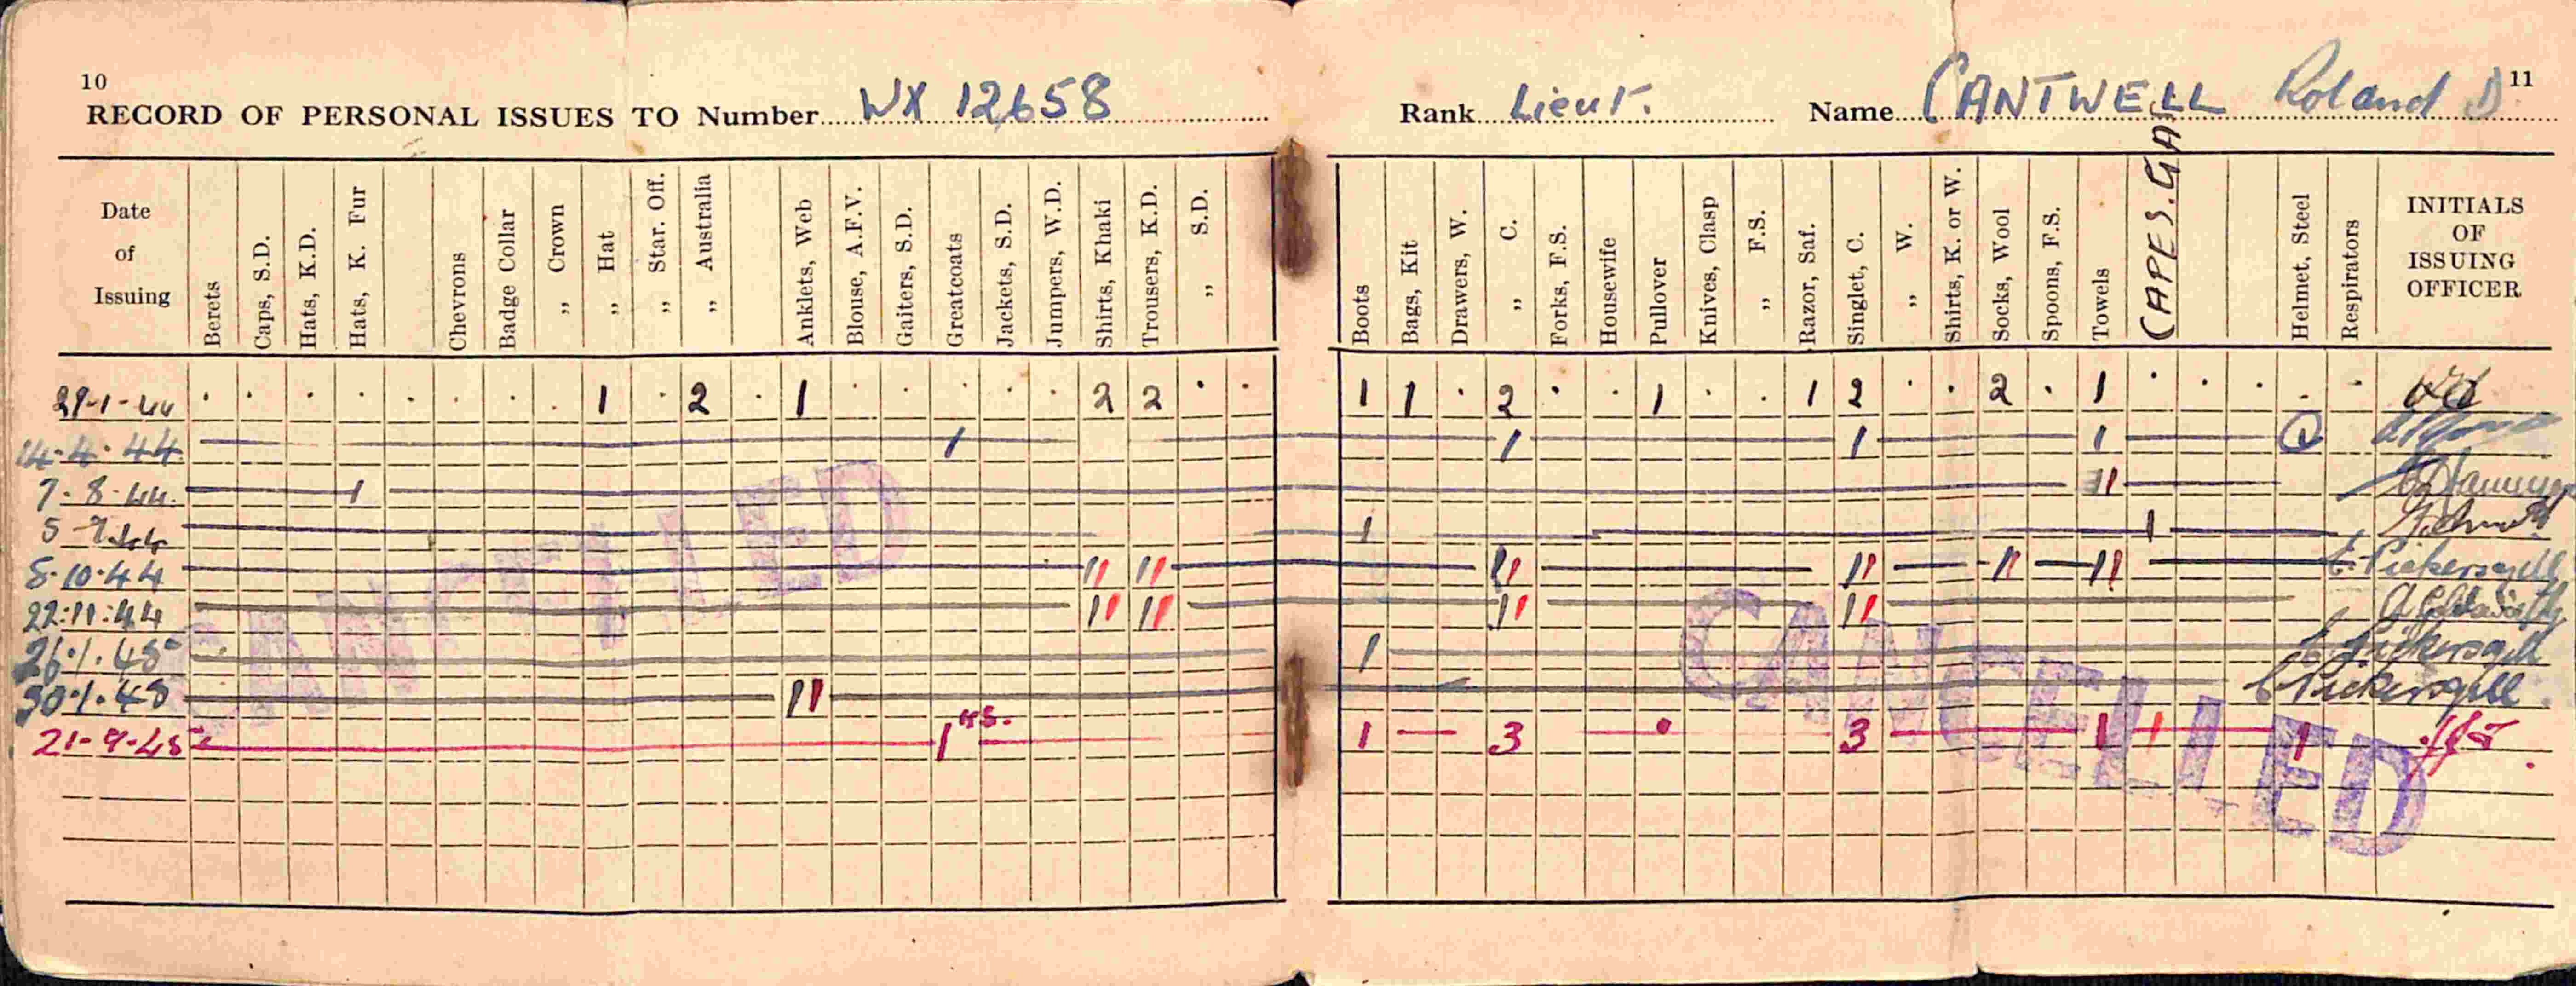 10
RECORD OF PERSONAL ISSUES TO Number WX 12658
Rank Lieut. Name CANTWELL Roland D 11
Date of Issuing Berets Caps, S.D. Hats, K.D. Hats, K. Fur Chevrons Badge Collar „ Crown „ Hat „ Star. Off. „ Australia Anklets, Web Blouse, A.F.V. Gaiters, S.D. Greatcoats Jackets, S.D. Jumpers, W.D. Shirts, Khaki Trousers, K.D. „ S.D. Boots Bags, Kit Drawers, W. „ C. Forks, F.S. Housewife Pullover Knives, Clasp „ F.S. Razor, Saf. Singlet, C. „ W. Shirts, K. or W. Socks, Wool Spoons, F.S. Towels CAPES. GAS Helmet, Steel Respirators INITIALS OF ISSUING OFFICER
29-1-44 1 2 1 2 2 1 1 2 1 1 2 2 1
14.4.44 1 1 1 1
7.8.44. 1 11
5-9-44 1 1
8.10.44 11 11 11 11 11 11 E. Pickersgill
22:11:44 11 11 11 11
26.1.45 1 E. Pickersgill
30.1.45 11 E. Pickersgill
21-9-45 1 1 3 3 1 1 1
CANCELLED
CANCELLED